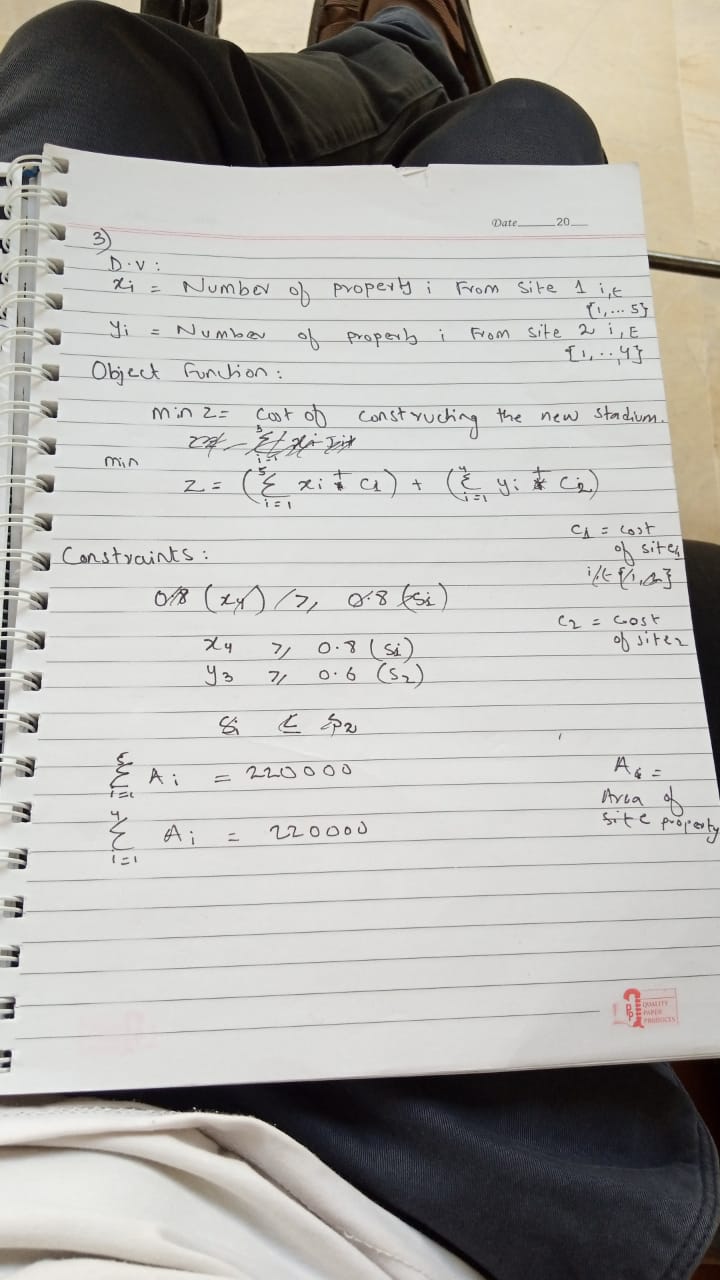 Date____20__
3)
D.V :
xi = Number of property i From Site 1 i,∈
{1,... 5}
yi = Number of property i From site 2 i,∈
{1,..,4}
Object Function :
min Z = Cost of constructing the new Stadium.
min
Z = (Σ xi * C1) + (Σ yi * C2)
5
i=1
4
i=1
C1 = cost
of site1
Constraints :
0.8 (x4) ≥ 0.8 (S1)
C2 = cost
of site2
x4 ≥ 0.8 (S1)
y3 ≥ 0.6 (S2)
5
Σ Ai = 220000
i=1
Ai =
Area of
site property
4
Σ Ai = 220000
i=1
QUALITY
PAPER
PRODUCES